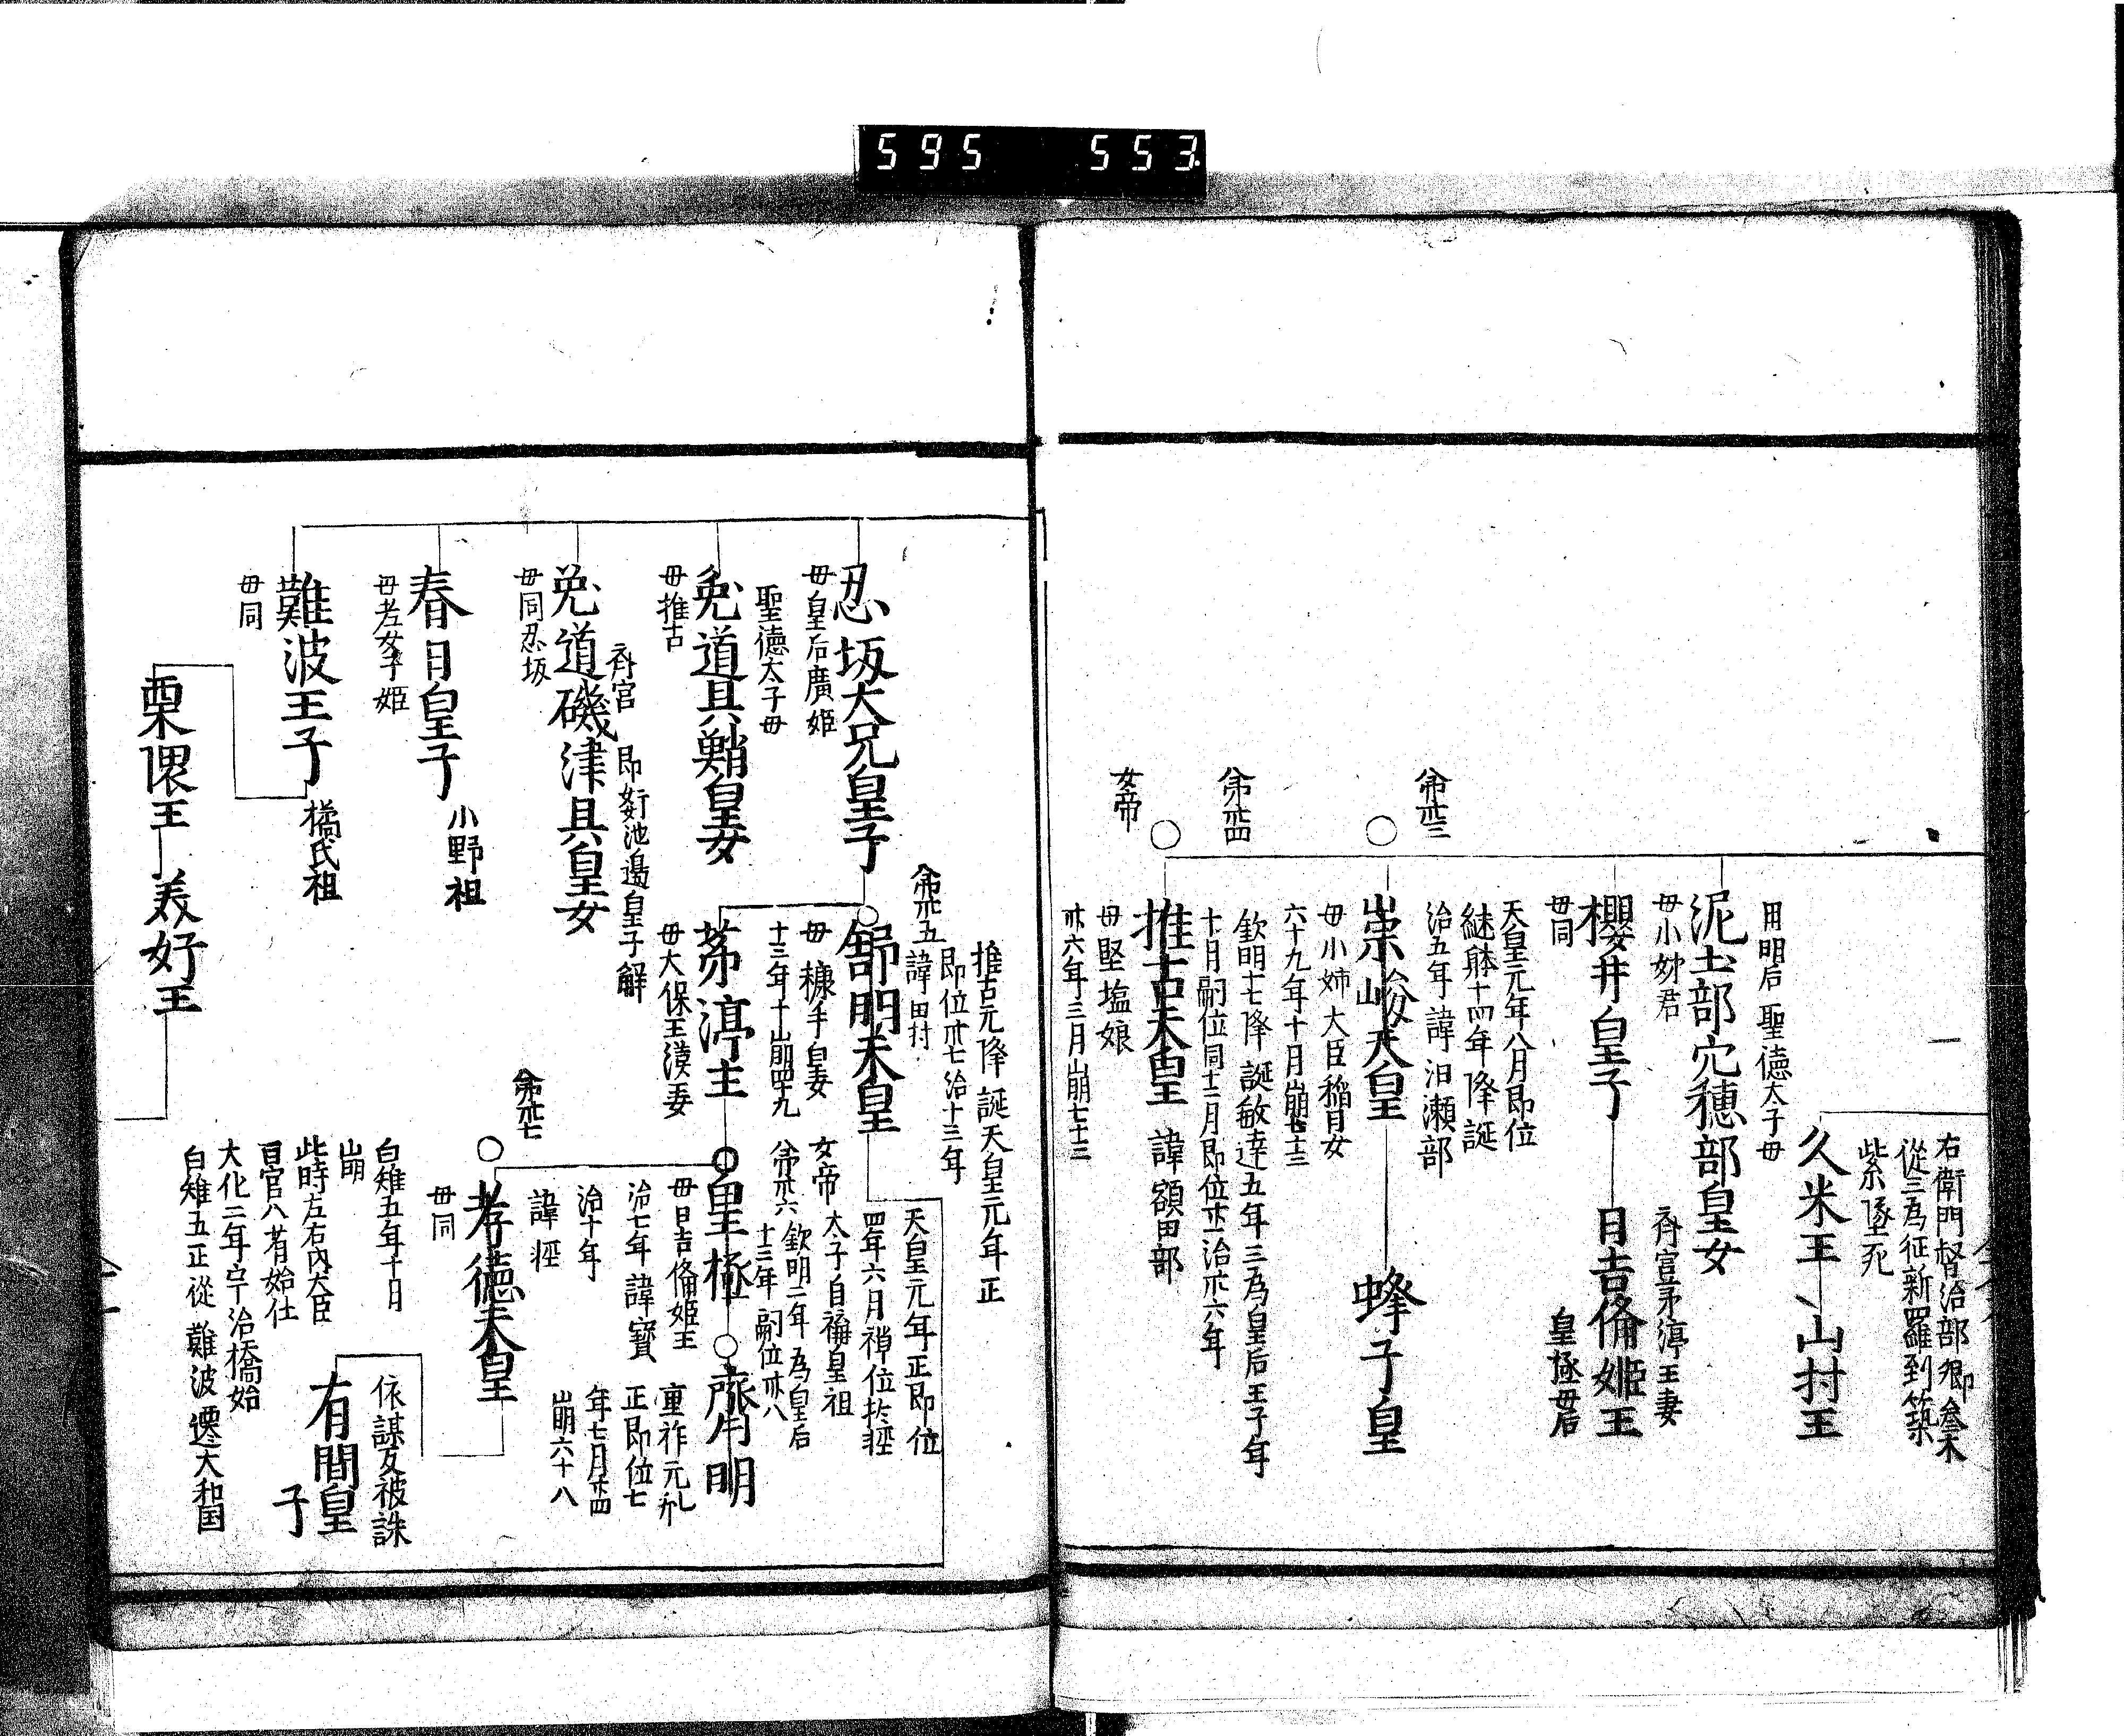 595 553
右衛門督治部卿
從三為征新羅到築
紫墜死
久米王
山村王
用明后 聖德太子毋
泥土部穴穗部皇女
毋小姉君
斉宮茅渟王妻
櫻井皇子
毋同
日吉俻姫王
皇極毋后
天皇元年八月即位
継躰十四年降誕
治五年諱泊瀬部
崇峻天皇
毋小姉大臣稲目女
六十九年十月崩
蜂子皇
欽明七降誕敏達五年三為皇后王子年
十月嗣位同十二月即位
推古天皇 諱額田部
女帝
毋堅塩娘
卅六年三月崩七十三
推古元降誕天皇元年正
即位卅七治十三年
諱田村
忍坂大兄皇子
毋皇后廣姫
舒明天皇
毋糠手皇妻
十三年十崩四十九
天皇元年正即位
四年六月禅位於軽
聖德太子毋
茅渟王
毋大保王漢妻
女帝
太子自称皇祖
欽明二年為皇后
十三年嗣位卅八
莵道貝鮹皇女
毋推古
皇極
毋日吉俻姫王
治七年諱寳
齊明
重祚元
正即位七
年七月
崩六十八
莵道磯津具皇女
毋同忍坂
斉宮
即奸池邊皇子解
治十年
諱軽
孝德天皇
毋同
春日皇子
毋老女子姫
小野祖
白雉五年十日
崩
依謀反被誅
有間皇
子
難波王子
毋同
橘氏祖
此時左右内大臣
百官八者始仕
大化二年宇治橋始
白雉五正從難波遷大和国
栗隈王
美好王